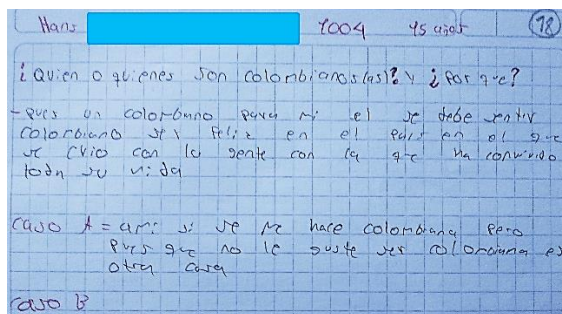 Hans 1004 15 años 18
¿Quien o quienes son colombianos(as)? y ¿por que?
- pues un colombano para mi el se debe sentir
colombiano ser feliz en el pais en el que
se crio con la gente con la que ha convivido
toda su vida
caso A = a mi si se me hace colombiana pero
pues que no le guste ser colombiana es
otra cosa
caso B